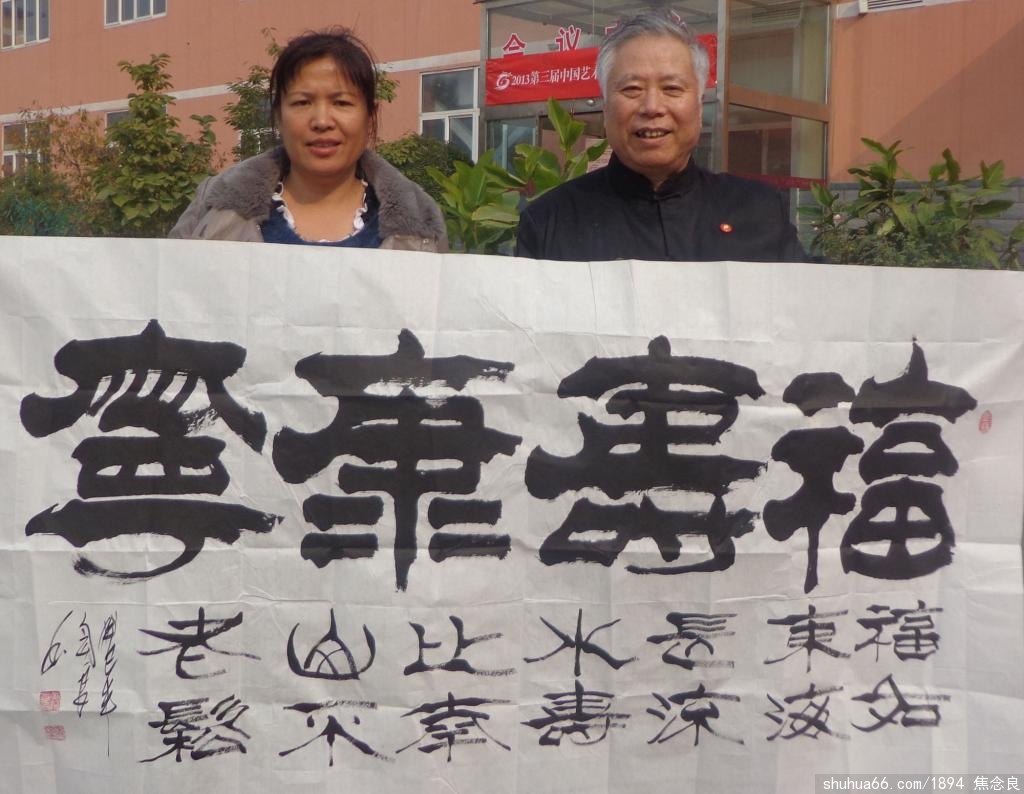 会议
2013第三届中国艺
福壽康寧
福如
東海
長流
水壽
比南
山不
老鬆
shuhua66.com/1894 焦念良